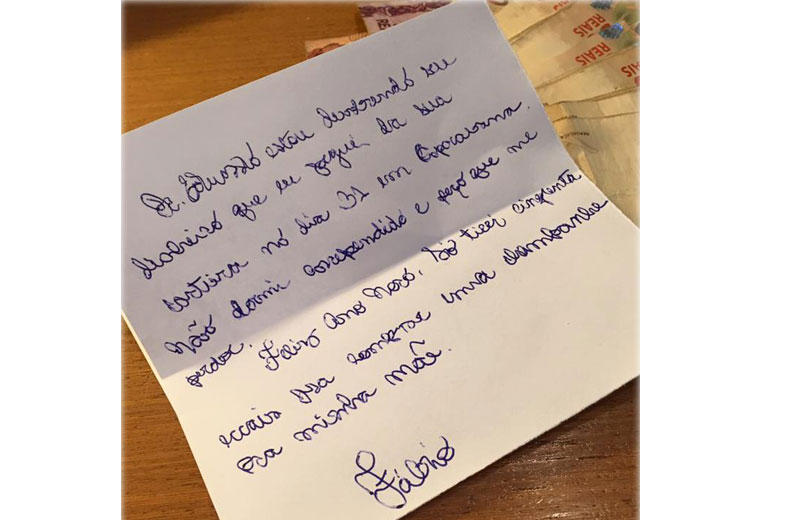 REAIS
REAIS
Sr. Eduardo estou devolvendo seu
dinheiro que eu peguei da sua
carteira no dia 31 em Copacabana.
Não dormi arrependido e peço que me
perdoe. Feliz Ano Novo. Só tirei cinquenta
reais pra comprar uma champanhe
pra minha mãe.
Fábio